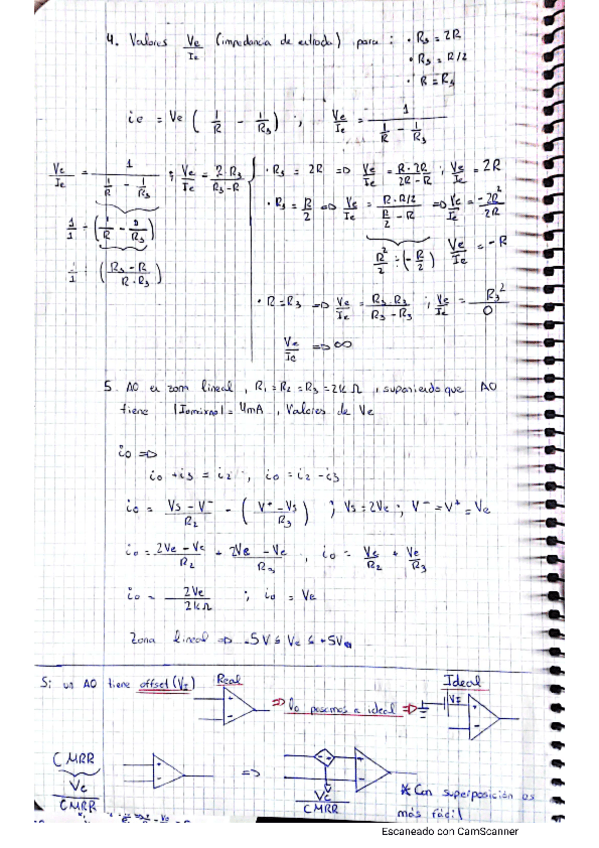 4. Valores Ve/Ie (impedancia de entrada) para : · R3 = 2R
· R3 = R/2
· R = R3
ie = Ve ( 1/R - 1/R3 ) ; Ve/Ie = 1 / (1/R - 1/R3)
Ve/Ie = 1 / (1/R - 1/R3) ; Ve/Ie = R·R3 / (R3-R)
· R3 = 2R => Ve/Ie = R·2R / (2R-R) ; Ve/Ie = 2R
1/1 ÷ (1/R - 1/R3)
· R3 = R/2 => Ve/Ie = (R·R/2) / (R/2 - R) => Ve/Ie = -2R² / 2R
R²/2 ÷ (-R/2) Ve/Ie = -R
1/1 ÷ ( (R3-R) / (R·R3) )
· R=R3 => Ve/Ie = R3·R3 / (R3-R3) ; Ve/Ie = R3² / 0
Ve/Ie => ∞
5. AO en zona lineal , R1 = R2 = R3 = 2k Ω , suponiendo que AO
tiene |Iomáx| = 4mA , Valores de Ve
io =>
io + i3 = i2 , io = i2 - i3
io = (Vs - V⁻)/R2 - ( (V⁺ - Vs)/R3 ) ; Vs = 2Ve ; V⁻ = V⁺ = Ve
io = (2Ve - Ve)/R2 + (2Ve - Ve)/R3 , io = Ve/R2 + Ve/R3
io = 2Ve / 2kΩ ; io = Ve
Zona lineal => -5V ≤ Ve ≤ +5V
Si un AO tiene offset (VI) Real => Lo pasamos a ideal => Ideal
VI
CMRR
Vc / CMRR
=>
Vc / CMRR
* Con superposición es
más fácil
Escaneado con CamScanner